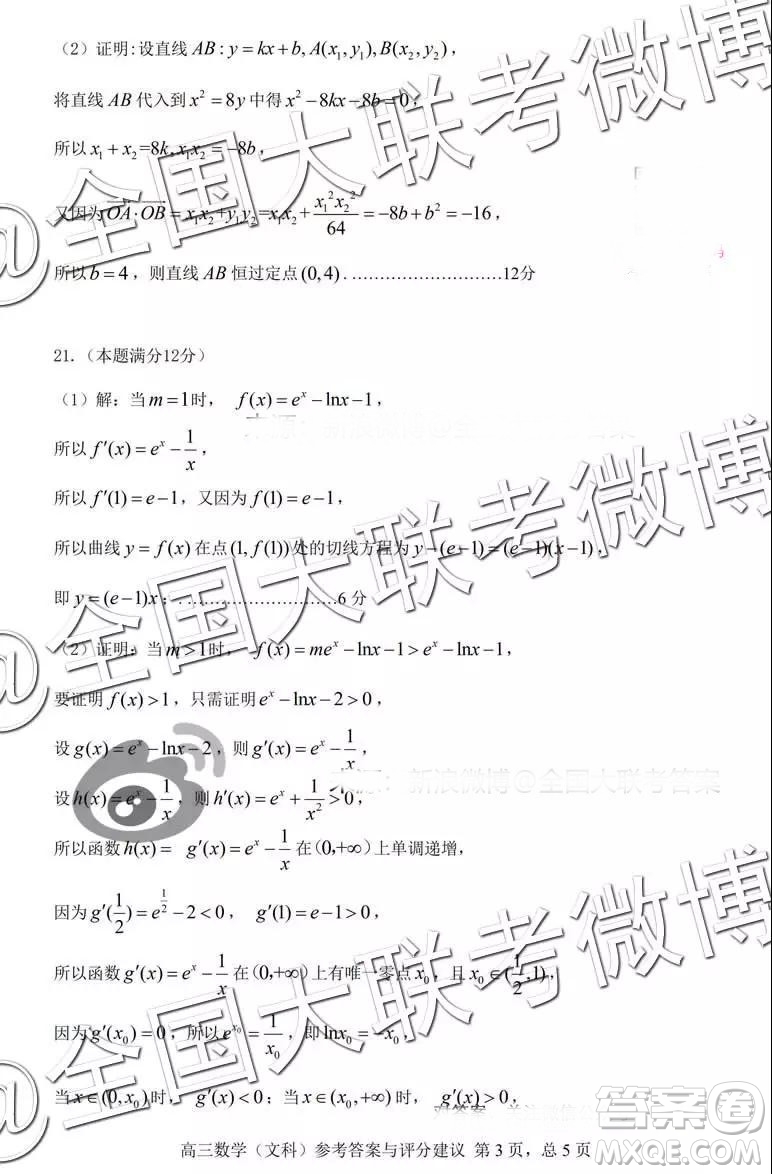 (2) 证明:设直线 AB : y = kx + b, A(x₁, y₁), B(x₂, y₂),
将直线 AB 代入到 x² = 8y 中得 x² − 8kx − 8b = 0,
所以 x₁ + x₂ = 8k, x₁x₂ = −8b,
又因为 \overrightarrow{OA}·\overrightarrow{OB} = x₁x₂ + y₁y₂ = x₁x₂ + \frac{x₁²x₂²}{64} = −8b + b² = −16,
所以 b = 4,则直线 AB 恒过定点 (0, 4) . ……………………12分
21.(本题满分12分)
(1)解:当 m = 1 时, f(x) = eˣ − lnx − 1,
所以 f′(x) = eˣ − \frac{1}{x},
所以 f′(1) = e − 1,又因为 f(1) = e − 1,
所以曲线 y = f(x) 在点 (1, f(1)) 处的切线方程为 y − (e − 1) = (e − 1)(x − 1),
即 y = (e − 1)x ; ……………………6 分
(2)证明:当 m > 1 时, f(x) = meˣ − lnx − 1 > eˣ − lnx − 1,
要证明 f(x) > 1,只需证明 eˣ − lnx − 2 > 0,
设 g(x) = eˣ − lnx − 2,则 g′(x) = eˣ − \frac{1}{x},
来源:新浪微博@全国大联考答案
设 h(x) = eˣ − \frac{1}{x},则 h′(x) = eˣ + \frac{1}{x²} > 0,
所以函数 h(x) = g′(x) = eˣ − \frac{1}{x} 在 (0, +∞) 上单调递增,
因为 g′(\frac{1}{2}) = e^{\frac{1}{2}} − 2 < 0, g′(1) = e − 1 > 0,
所以函数 g′(x) = eˣ − \frac{1}{x} 在 (0, +∞) 上有唯一零点 x₀,且 x₀ ∈ (\frac{1}{2}, 1),
因为 g′(x₀) = 0,所以 e^{x₀} = \frac{1}{x₀},即 lnx₀ = −x₀,
当 x ∈ (0, x₀) 时, g′(x) < 0;当 x ∈ (x₀, +∞) 时, g′(x) > 0,
高三数学(文科)参考答案与评分建议 第 3 页,总 5 页
@全国大联考微博
@全国大联考微博
@全国大联考微博
答案圈
MXQE.COM